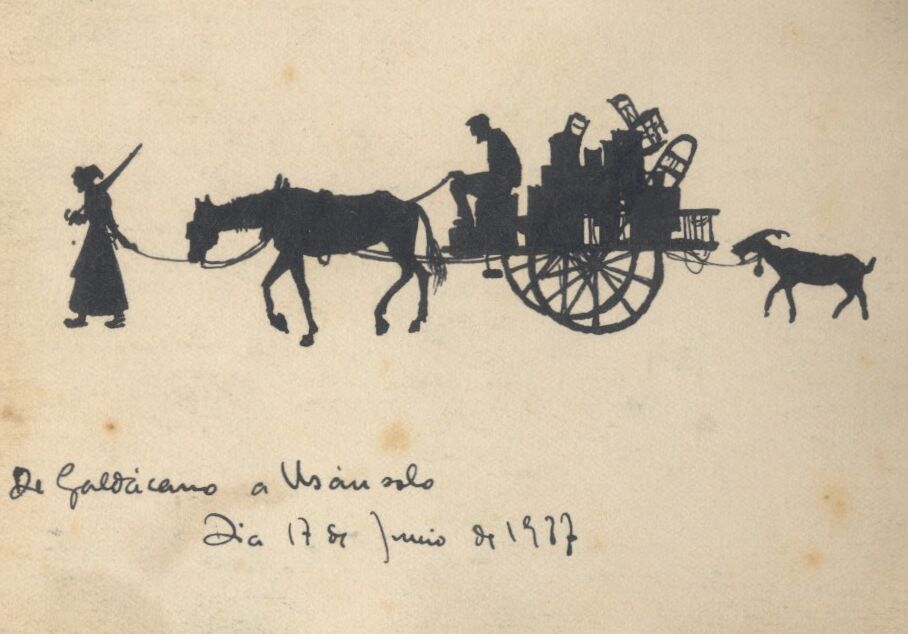 De Galdácano a Usánsolo
Dia 17 de Junio de 1937